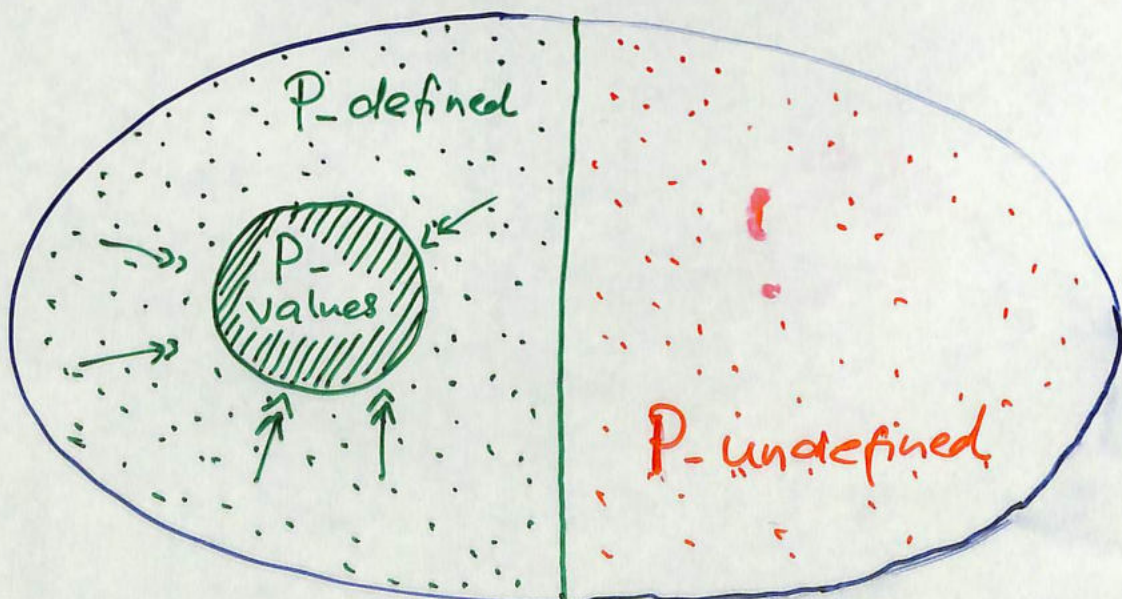 P-defined
P-
values
P-undefined